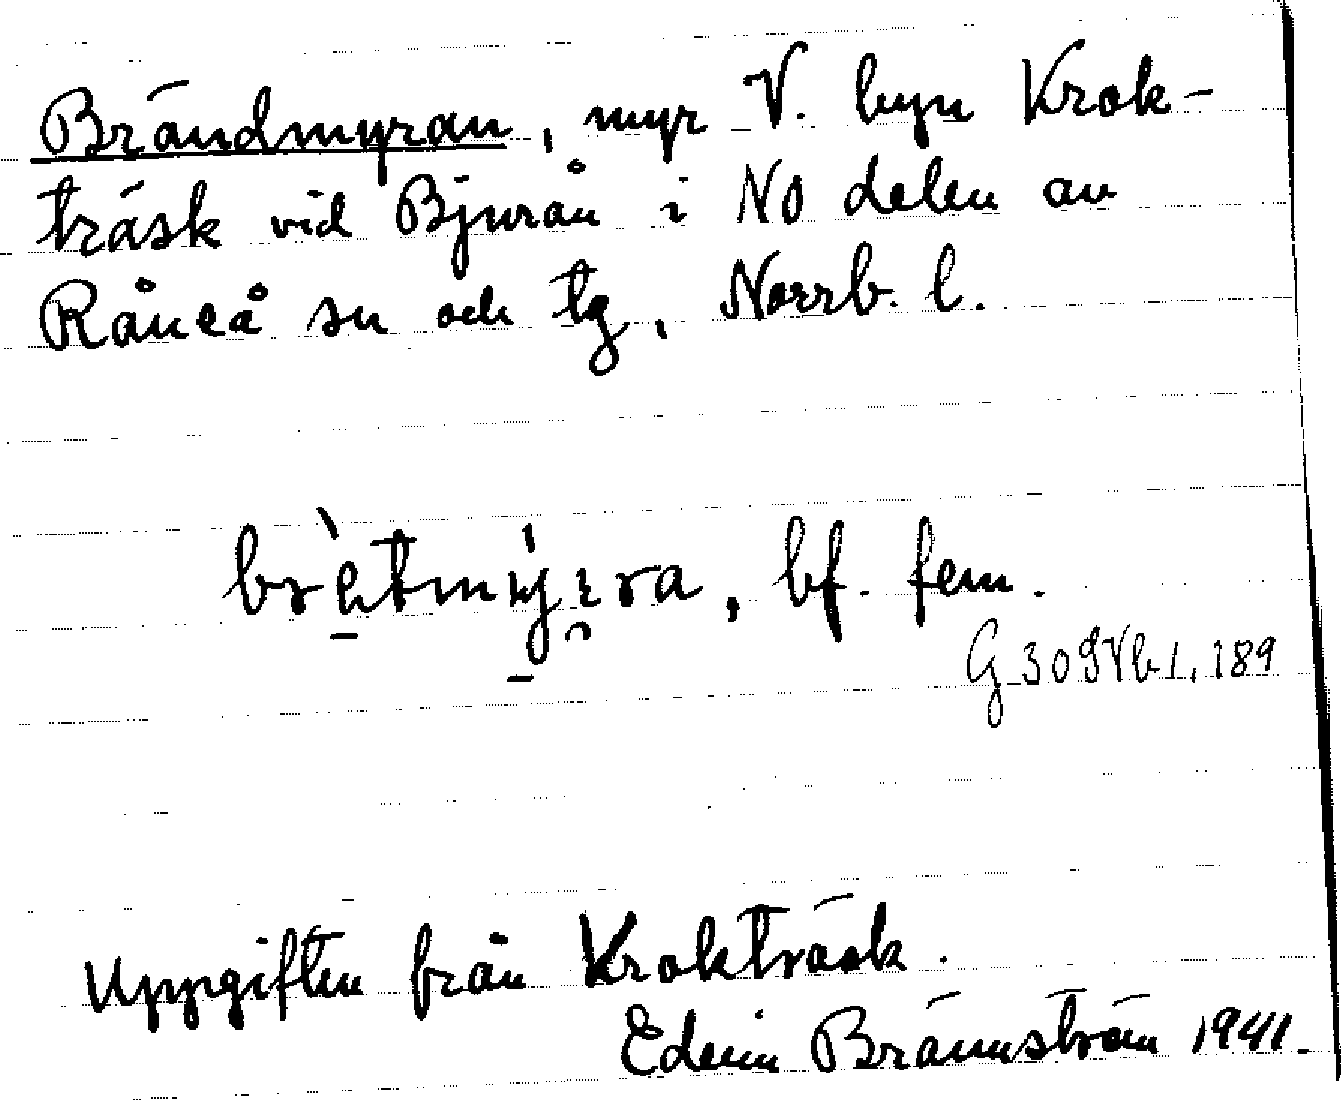 Brändmyran, myr V. byn Krok-
träsk vid Bjurån i NO delen av
Råneå sn och tg, Norrb. l.
bf. fem.
G 30 9Vb 1, 189
Uppgiften från Krokträsk.
Edvin Brännström 1941.